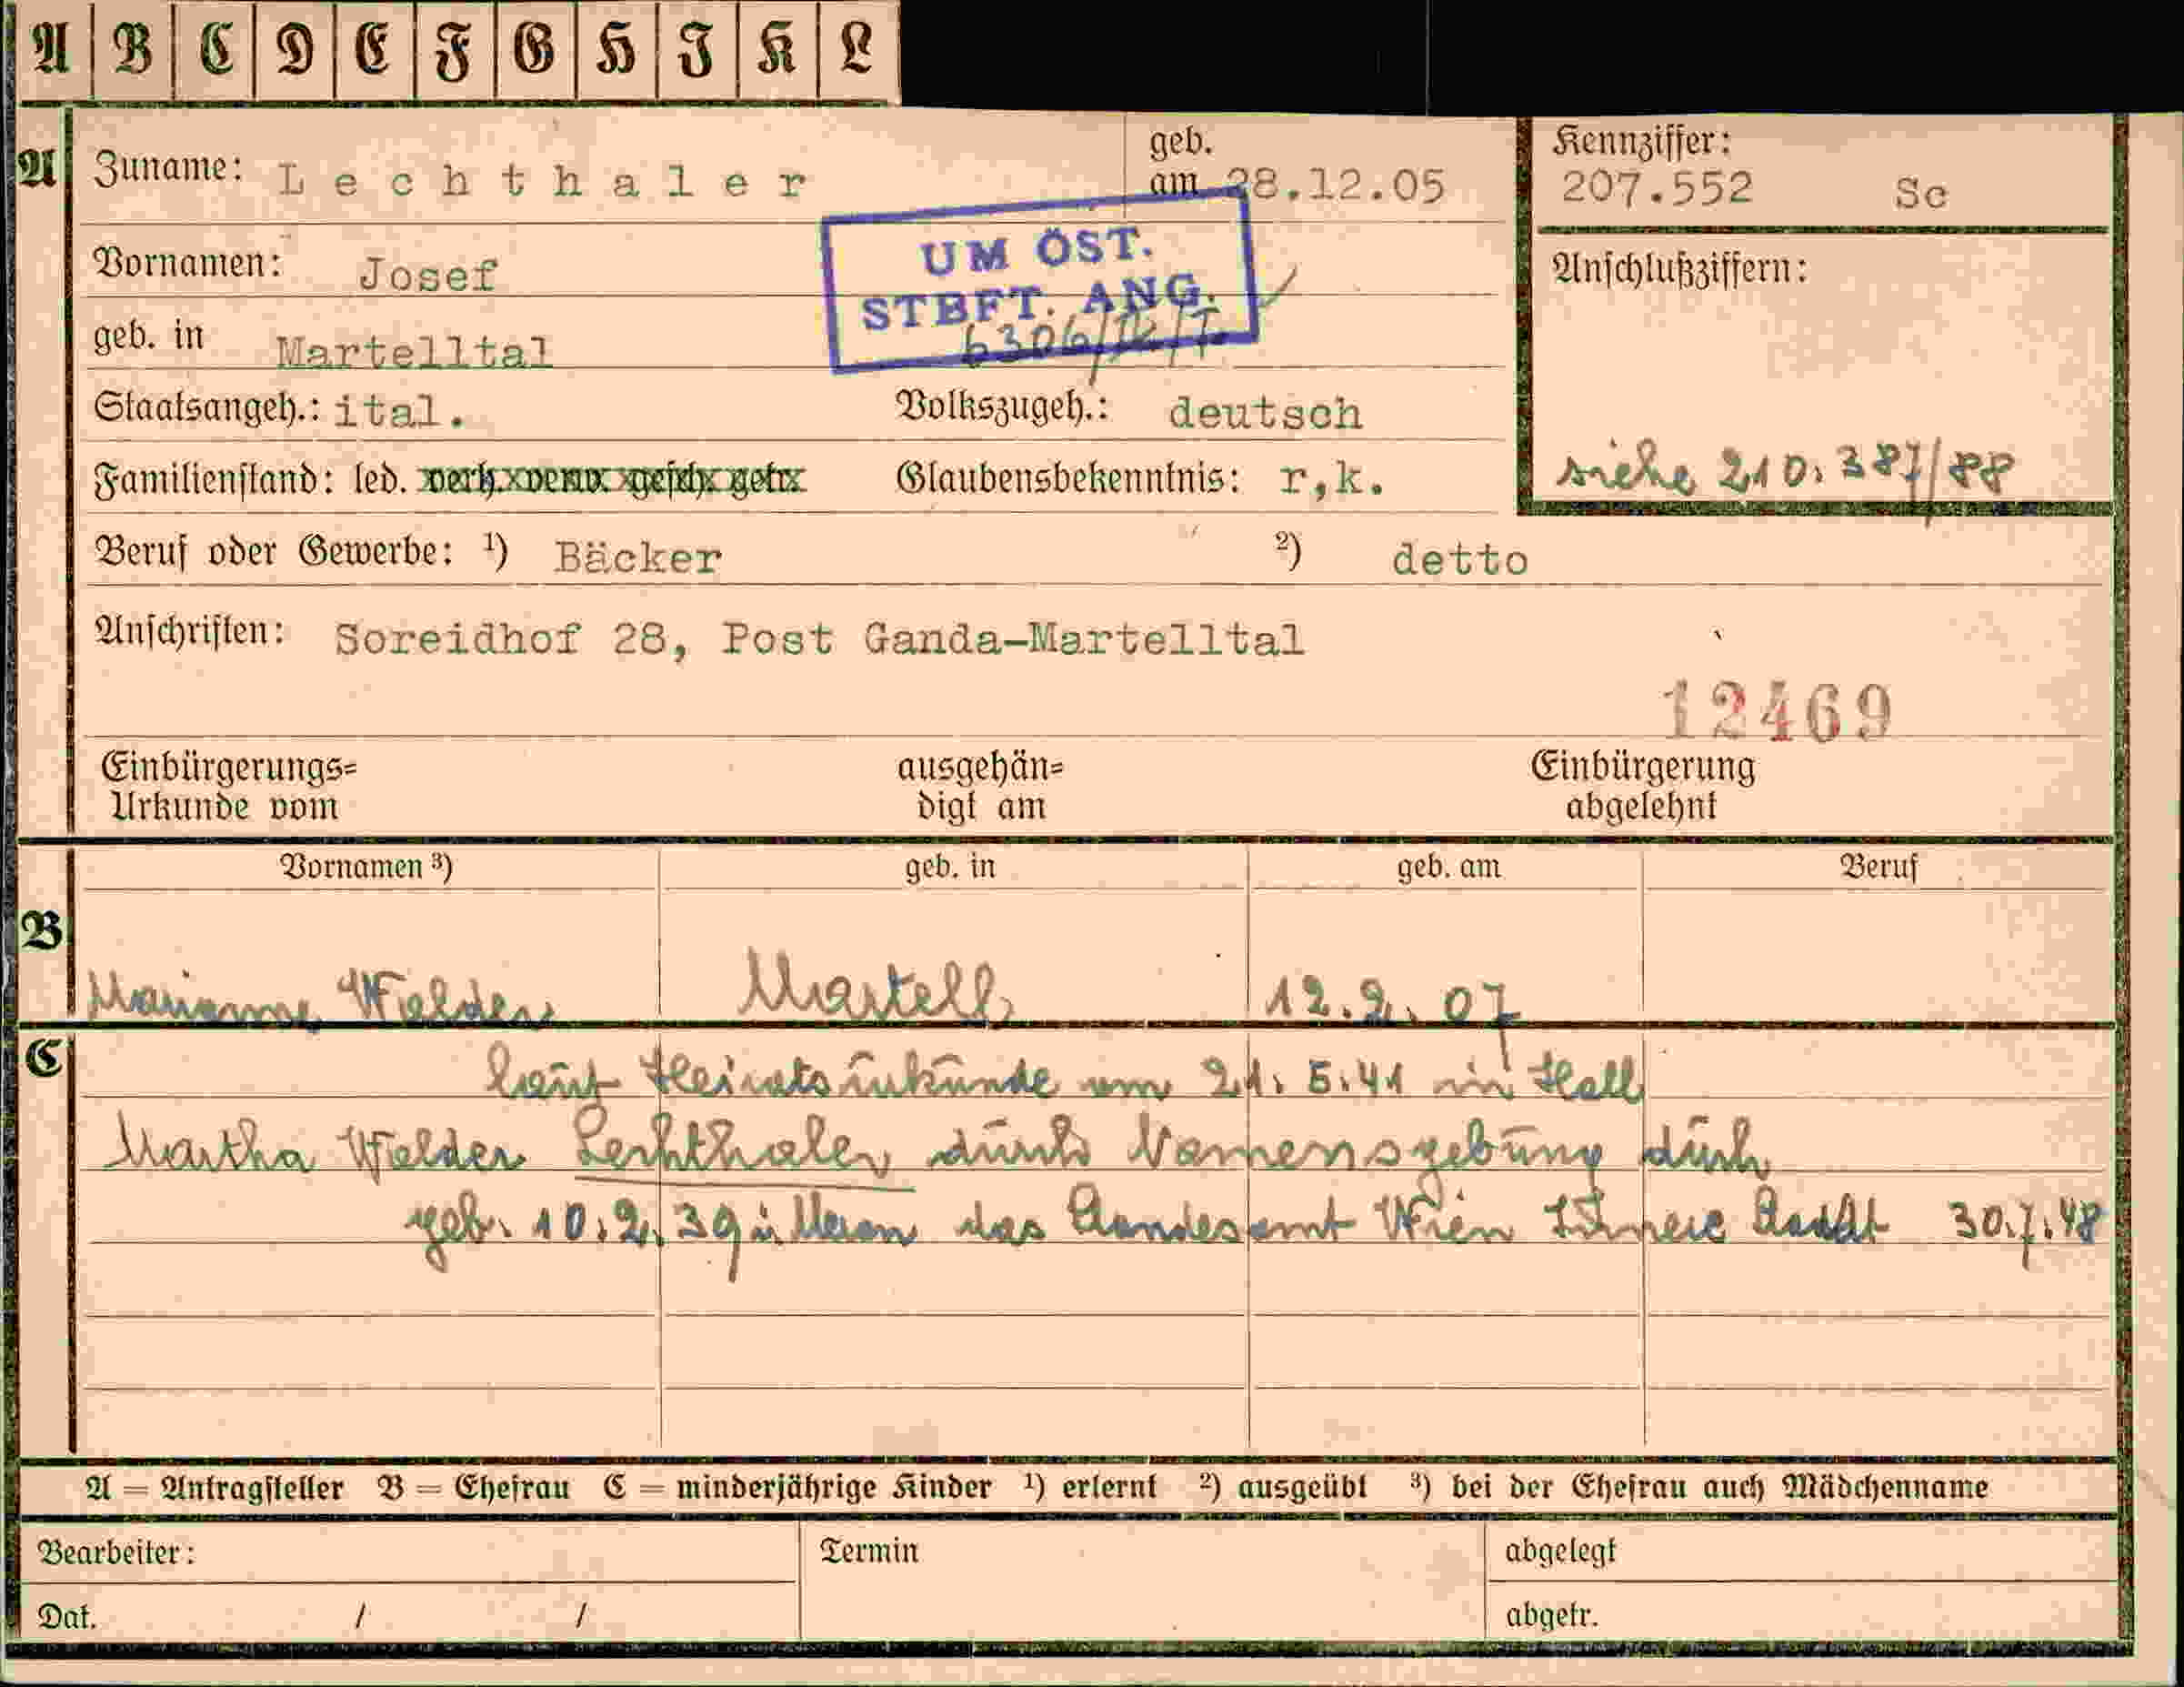 A B C D E F G H I K L
A Zuname: Lechthaler geb. am 28.12.05 Kennziffer: 207.552 Sc
Vornamen: Josef
UM ÖST. STBFT. ANG.
6306/
Anschlußziffern:
geb. in Martelltal
Staatsangeh.: ital. Volkszugeh.: deutsch
Familienstand: led. verh. verw. gesch. getr. Glaubensbekenntnis: r,k. siehe 210.387/88
Beruf oder Gewerbe: ¹) Bäcker ²) detto
Anschriften: Soreidhof 28, Post Ganda-Martelltal
12469
Einbürgerungs= ausgehän= Einbürgerung
Urkunde vom digt am abgelehnt
Vornamen ³) geb. in geb. am Beruf
B
Marianne Welder Martell 12.2.07
C
laut Heiratsurkunde vom 21.5.41 in Hall
Martha Welder Lechthaler durch Namensgebung durch
geb. 10.2.39 in Meran das Standesamt Wien Innere Stadt 30.7.48
A = Antragsteller B = Ehefrau C = minderjährige Kinder ¹) erlernt ²) ausgeübt ³) bei der Ehefrau auch Mädchenname
Bearbeiter: Termin abgelegt
Dat. / / abgetr.